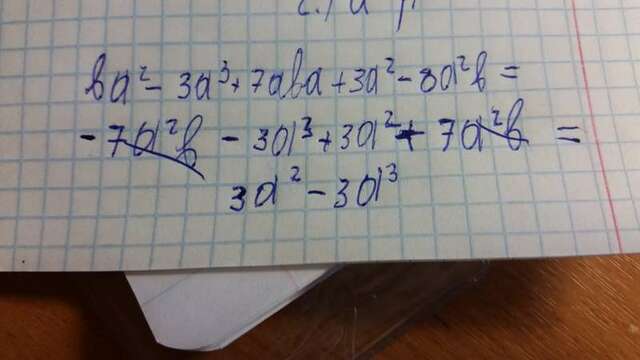 ba² - 3a³ + 7aba + 3a² - 8a²b =
- 7a²b - 3a³ + 3a² + 7a²b =
3a² - 3a³